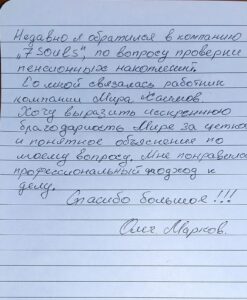 Недавно я обратился в компанию
„7 souls", по вопросу проверки
пенсионных накоплений.
Со мной связалась работник
компании Мира
Хочу выразить искреннюю
благодарность Мире за четкое
и понятное объяснение по
моему вопросу. Мне понравился
профессиональный подход к
делу.
Спасибо большое!!!
Олег Марков.